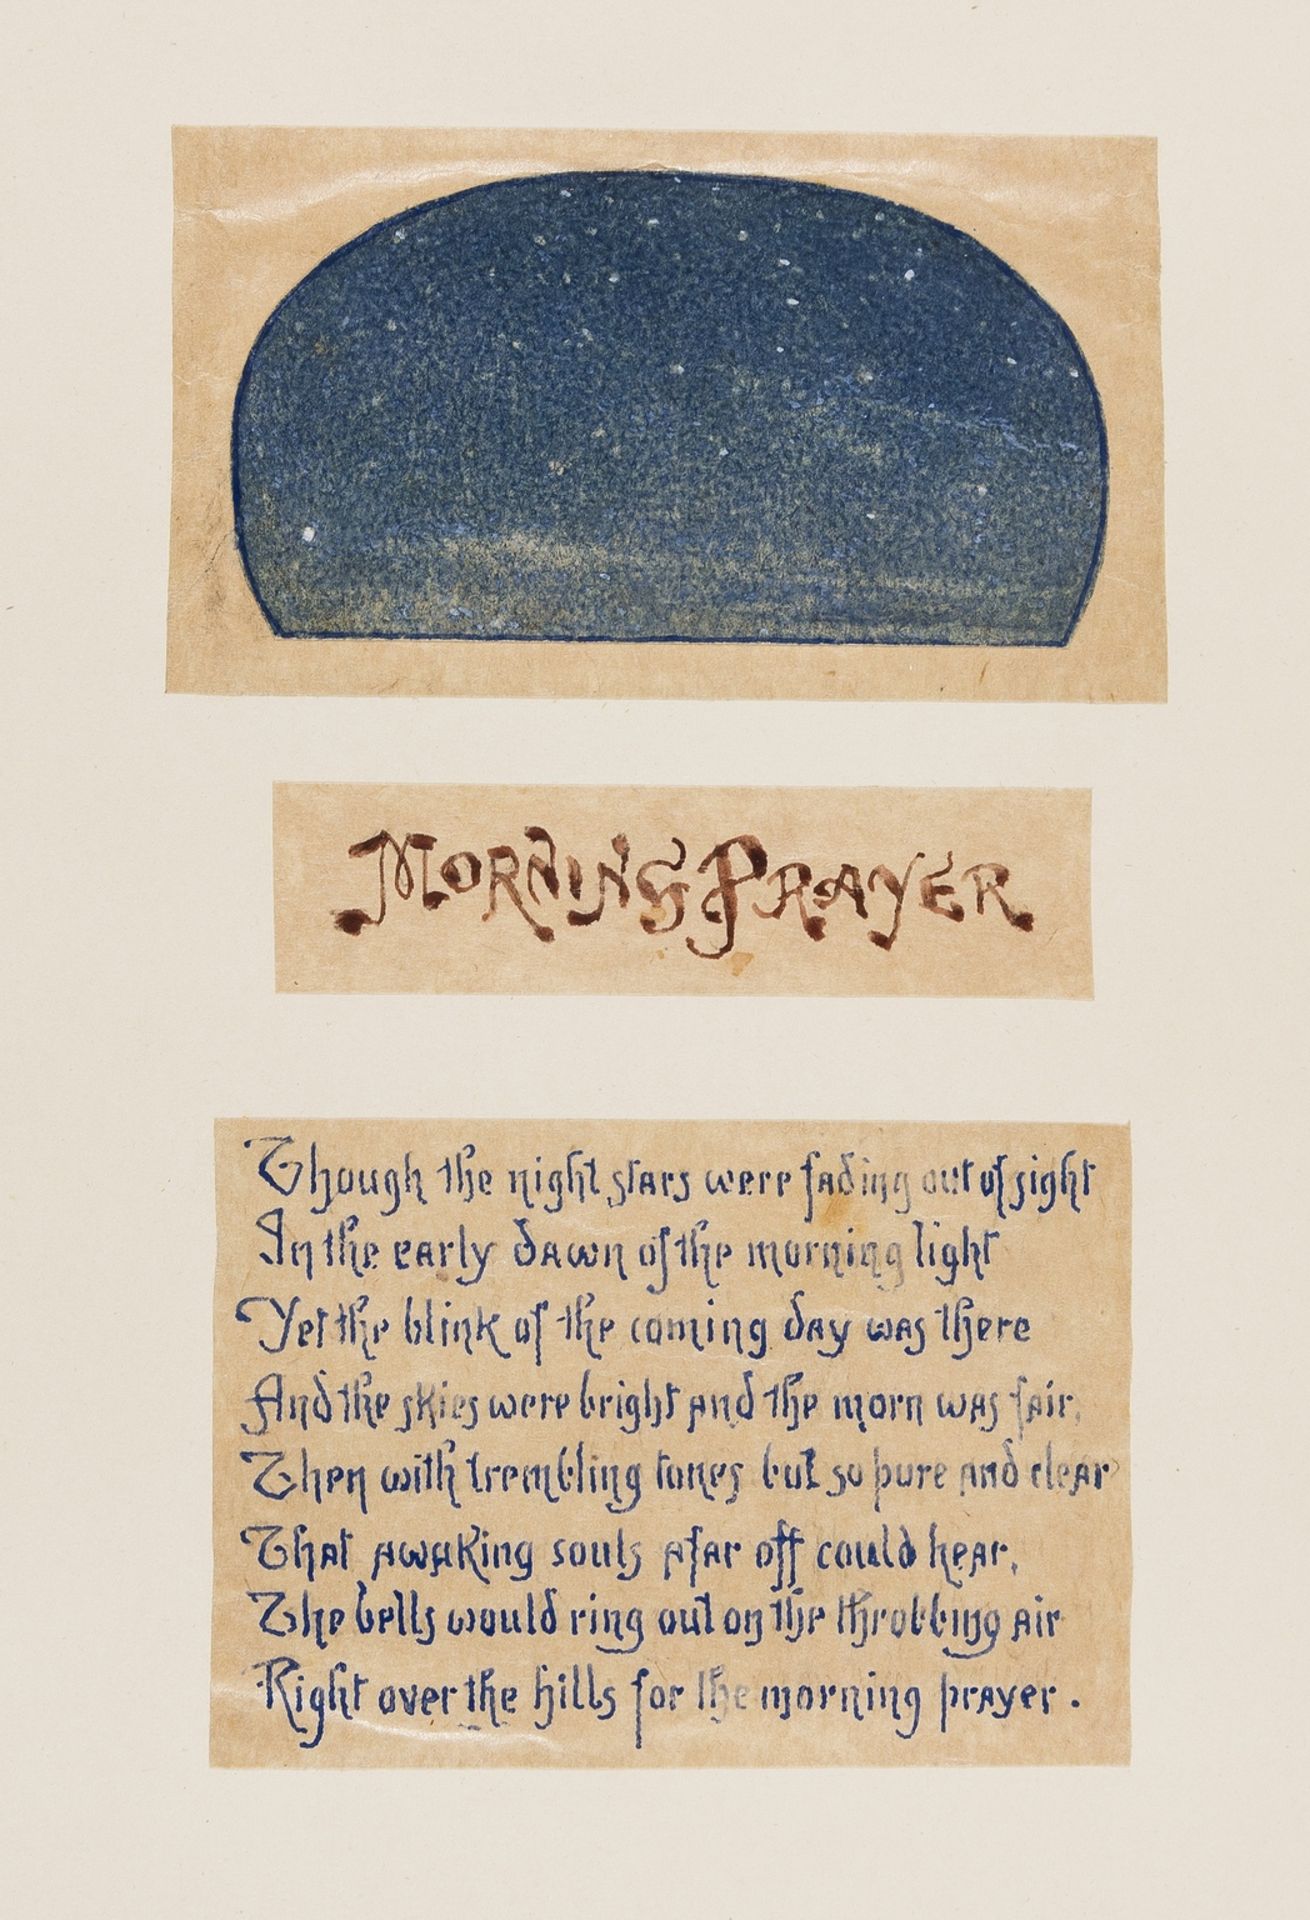 MORNING PRAYER
Though the night stars were fading out of sight
In the early dawn of the morning light
Yet the blink of the coming day was there
And the skies were bright and the morn was fair,
Then with trembling tones but so pure and clear
That awaking souls afar off could hear,
The bells would ring out on the throbbing air
Right over the hills for the morning prayer.